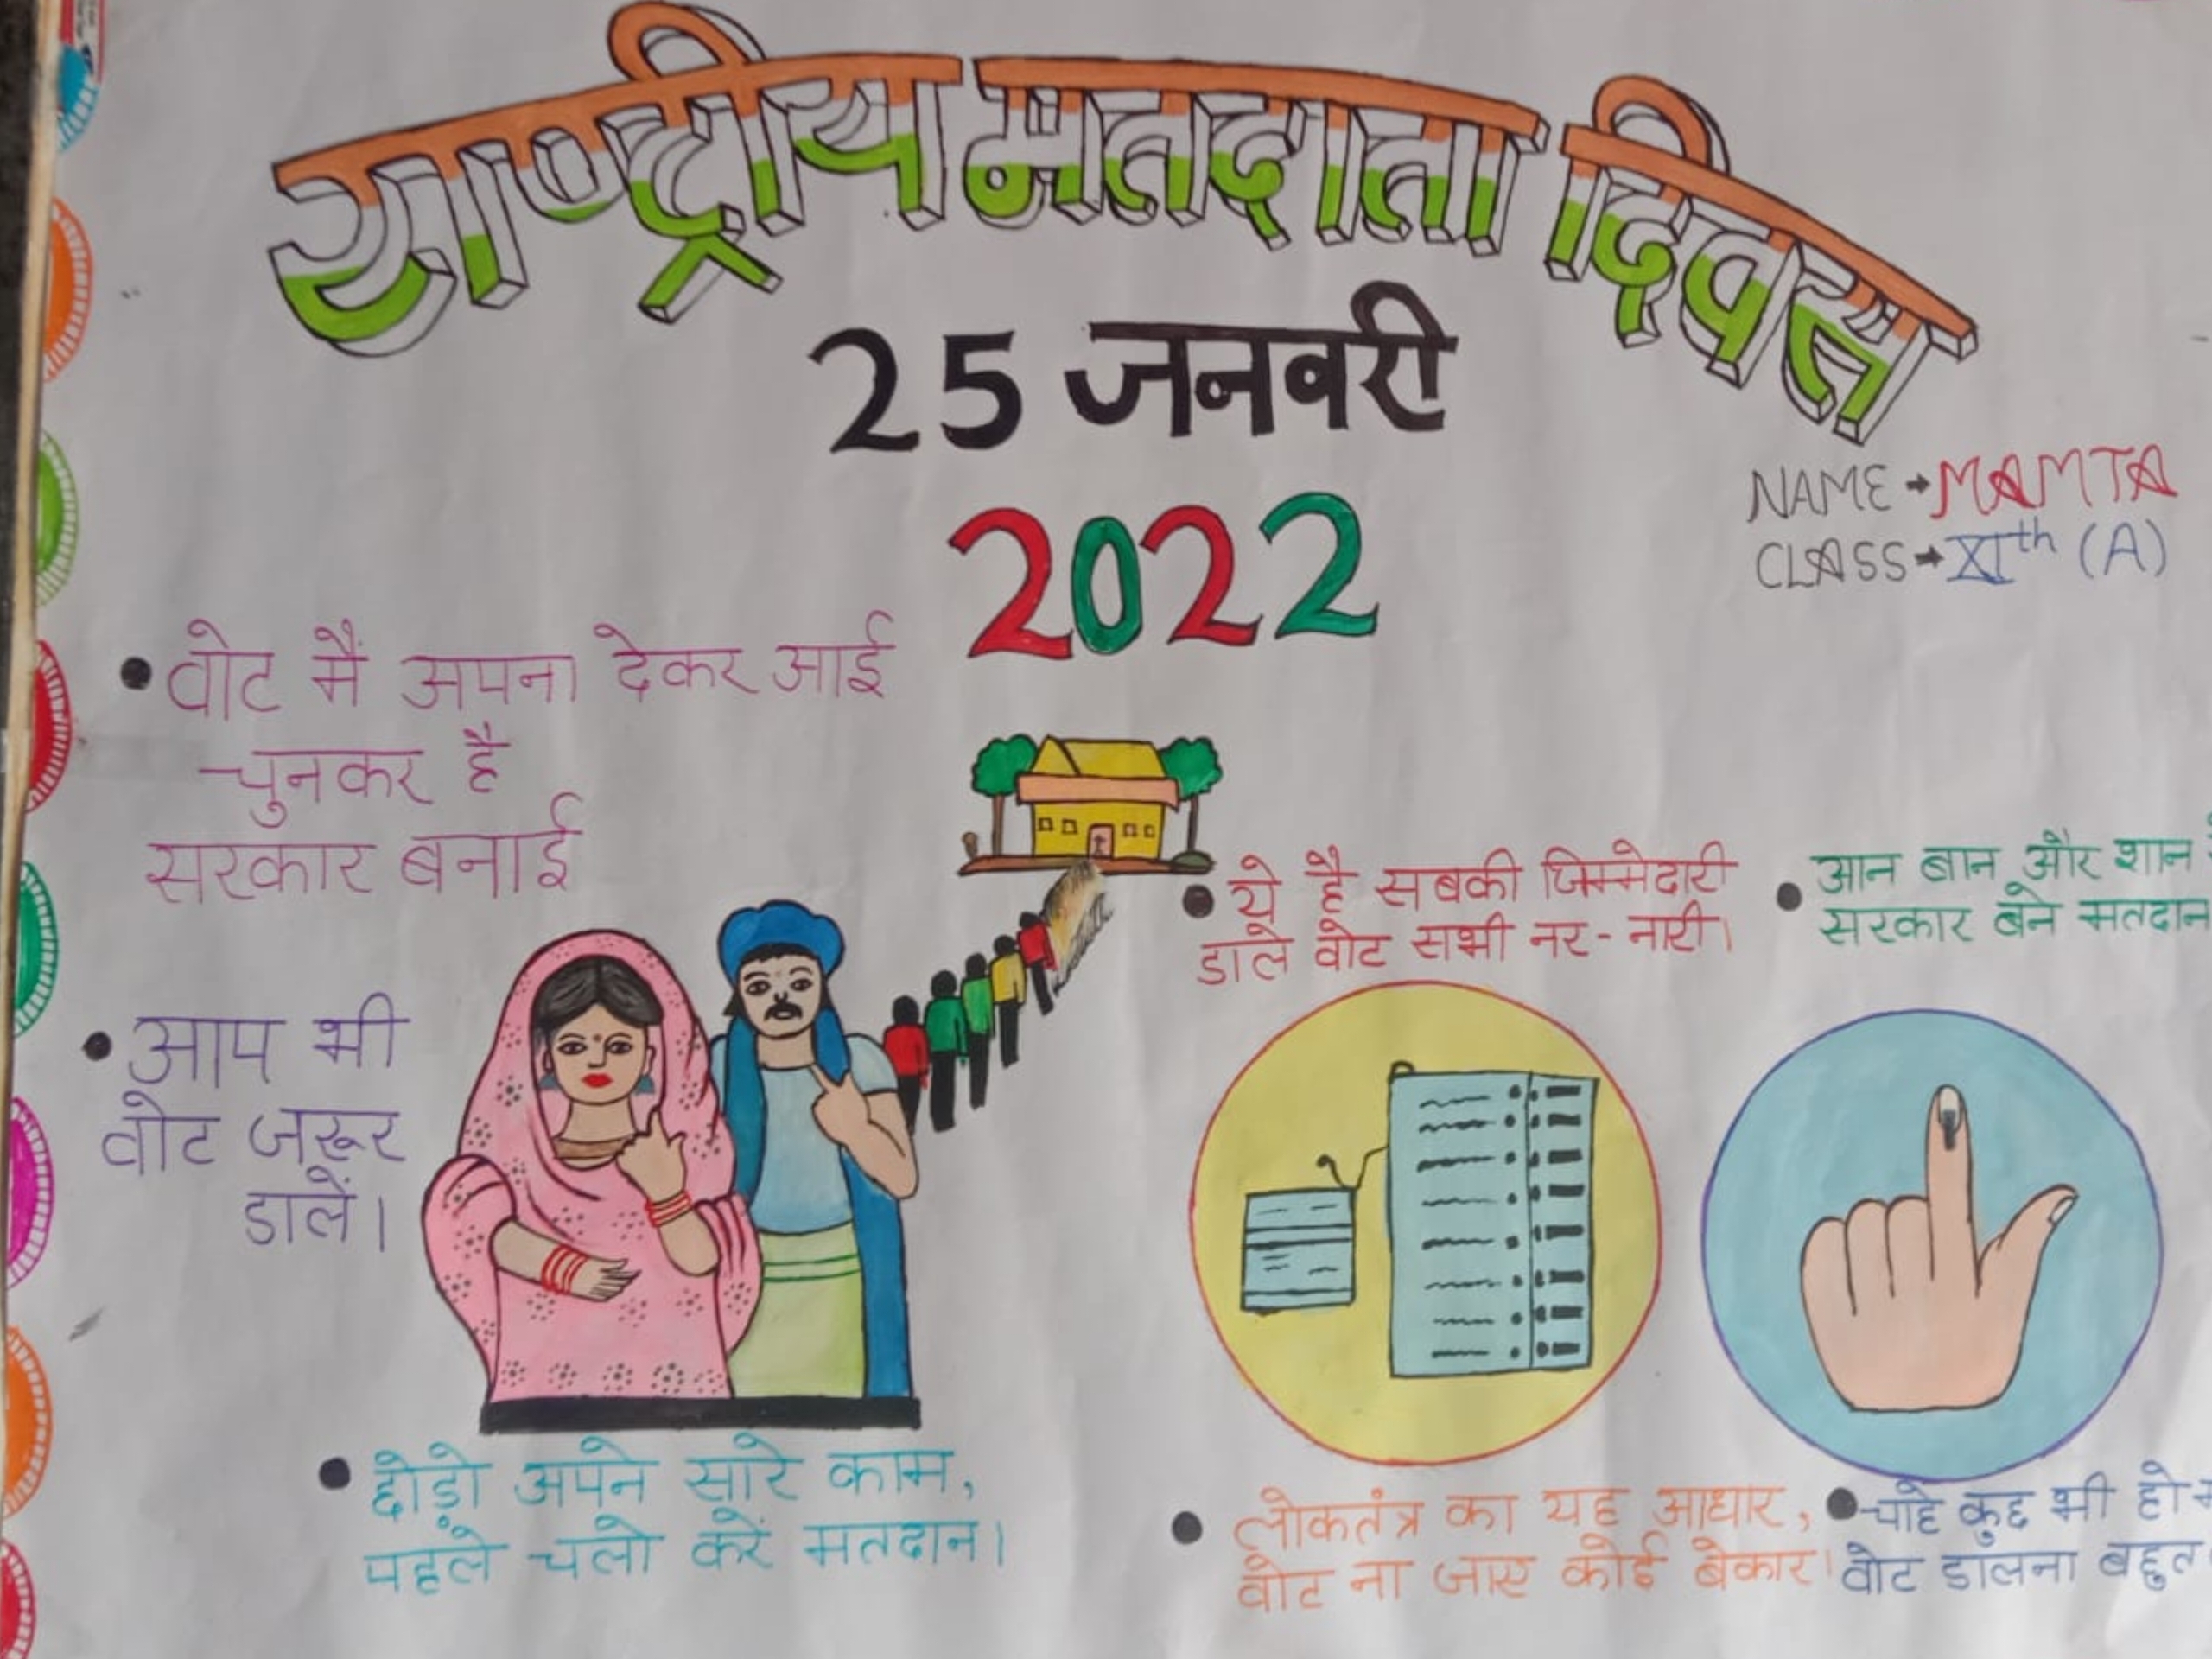 राष्ट्रीय मतदाता दिवस
25 जनवरी
2022
NAME → MAMTA
CLASS → XIth (A)
• वोट मैं अपना देकर आई
चुनकर है
सरकार बनाई
• आप भी
वोट जरूर
डालें।
• छोड़ो अपने सारे काम,
पहले चलो करें मतदान।
• ये है सबकी जिम्मेदारी
डाले वोट सभी नर-नारी।
• आन बान और शान
सरकार बने मतदान
• लोकतंत्र का यह आधार,
वोट ना जाए कोई बेकार।
• चाहे कुछ भी हो
वोट डालना बहुत